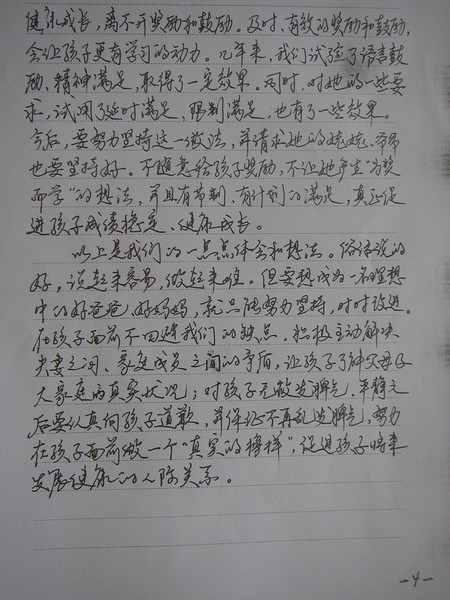 健康成长，离不开奖励和鼓励。及时、有效的奖励和鼓励，
会让孩子更有学习的动力。几年来，我们试验了语言鼓
励，精神满足，取得了一定效果。同时，对她的一些要
求，试用了延时满足，限制满足，也有了一些效果。
今后，要努力坚持这一做法，并请求她的姥姥、爷爷
也要坚持好。不随意给孩子奖励，不让她产生“为奖
而学”的想法，并且有节制、有计划的满足，真正促
进孩子成绩稳定、健康成长。
以上是我们的一点点体会和想法。俗话说的
好，说起来容易，做起来难。但要想成为一名理想
中的好爸爸，好妈妈，就只能努力坚持，时时改进。
在孩子面前不回避我们的缺点，积极主动解决
夫妻之间、家庭成员之间的矛盾，让孩子了解父母及
大家庭的真实状况；对孩子无故发脾气，平静之
后要认真向孩子道歉，并保证不再乱发脾气，努力
在孩子面前做一个“真实的榜样”，促进孩子将来
发展健康的人际关系。
-4-